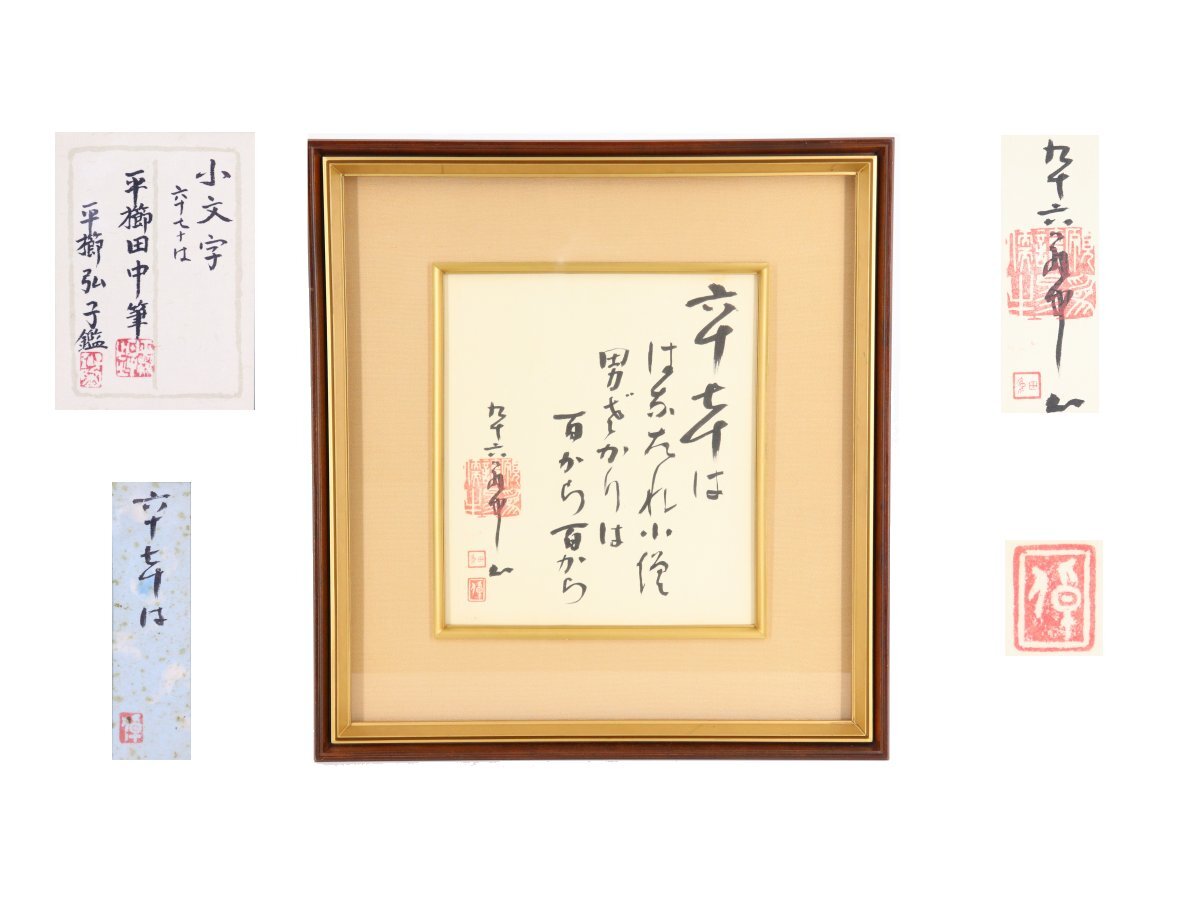 小文字
六十七十は
平櫛田中筆
平櫛弘子鑑
六十七十は
六十七十は
はなたれ小僧
男ざかりは
百から百から
九十六
九十六